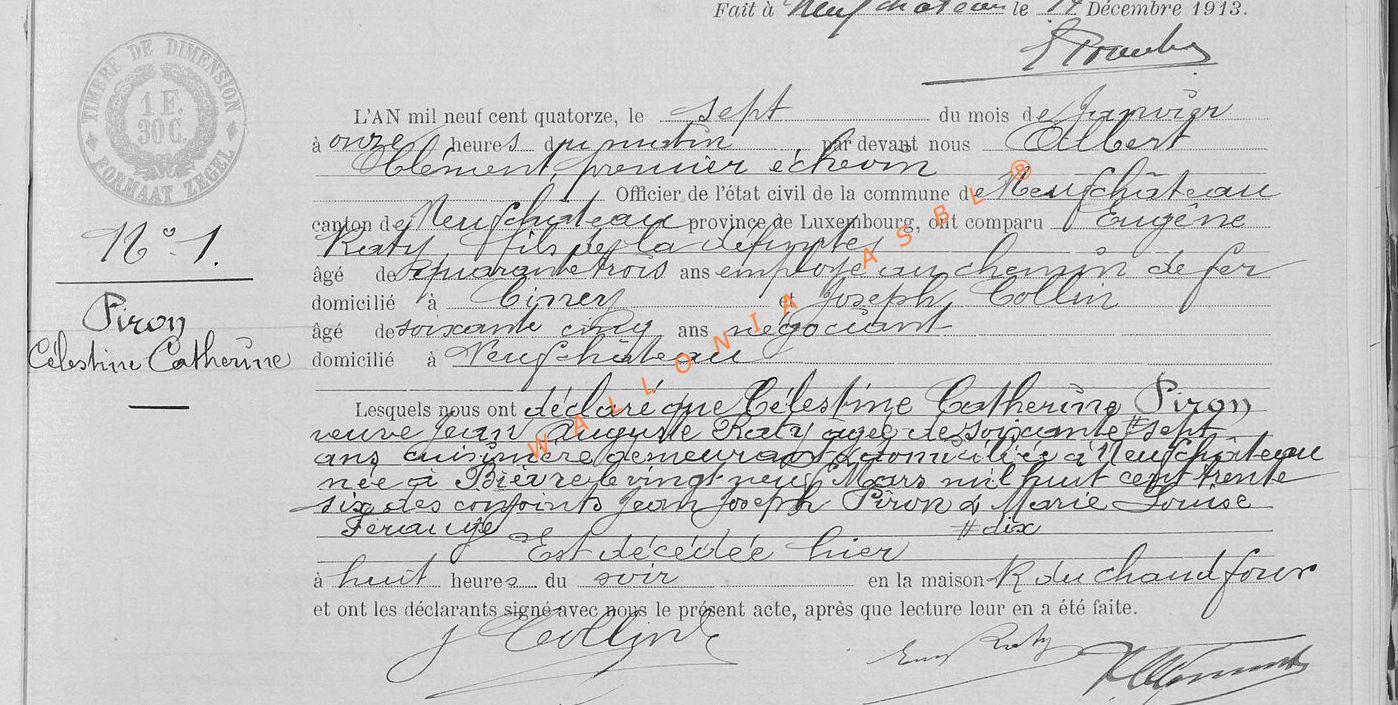 Fait à Neufchâteau le 17 Décembre 1913.
TIMBRE DE DIMENSION
1 F.
30 C.
FORMAAT ZEGEL
L'AN mil neuf cent quatorze, le sept du mois de Janvier
à onze heures du matin par devant nous Albert
Clément, premier échevin
Officier de l'état civil de la commune de Neufchâteau
canton de Neufchâteau province de Luxembourg, ont comparu Eugène
Raty fils de la défunte
âgé de quarante trois ans employé au chemin de fer
domicilié à Ciney et Joseph Collin
âgé de soixante cinq ans négociant
domicilié à Neufchâteau
N° 1.
Piron
Célestine Catherine
Lesquels nous ont déclaré que Célestine Catherine Piron
veuve Jean Auguste Raty âgée de soixante # sept
ans cuisinière demeurant & domiciliée à Neufchâteau
née à Bièvre le vingt neuf Mars mil huit cent trente
six des conjoints Jean Joseph Piron & Marie Louise
# dix
Est décédée hier
à huit heures du soir en la maison R du chaud four
et ont les déclarants signé avec nous le présent acte, après que lecture leur en a été faite.
J Collin
Eug Raty
WALLONIA ASBL ®